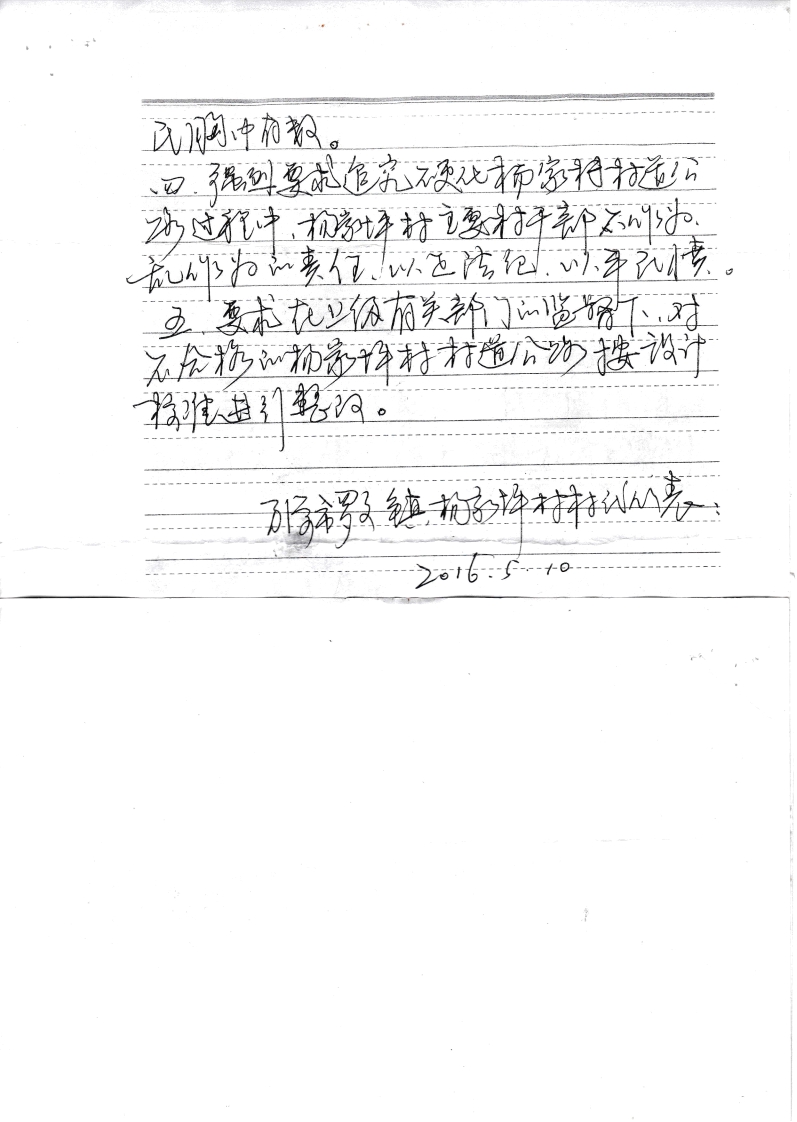 民胸中有数。
四、强烈要求追究硬化杨家坪村道公
路过程中、杨家坪村主要村干部不作为、
乱作为的责任、以正法纪、以平民愤。
五、要求在上级有关部门的监督下、对
不合格的杨家坪村村道公路按设计
标准进行整改。
万源市罗文镇杨家坪村村民代表:
2016.5.10